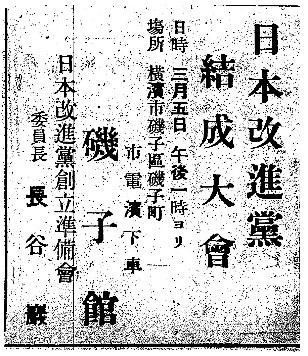 日本改進黨
結成大會
日時 三月五日 午後一時ヨリ
場所 横濱市磯子區磯子町
市電濱下車
磯子館
日本改進黨創立準備會
委員長 長谷